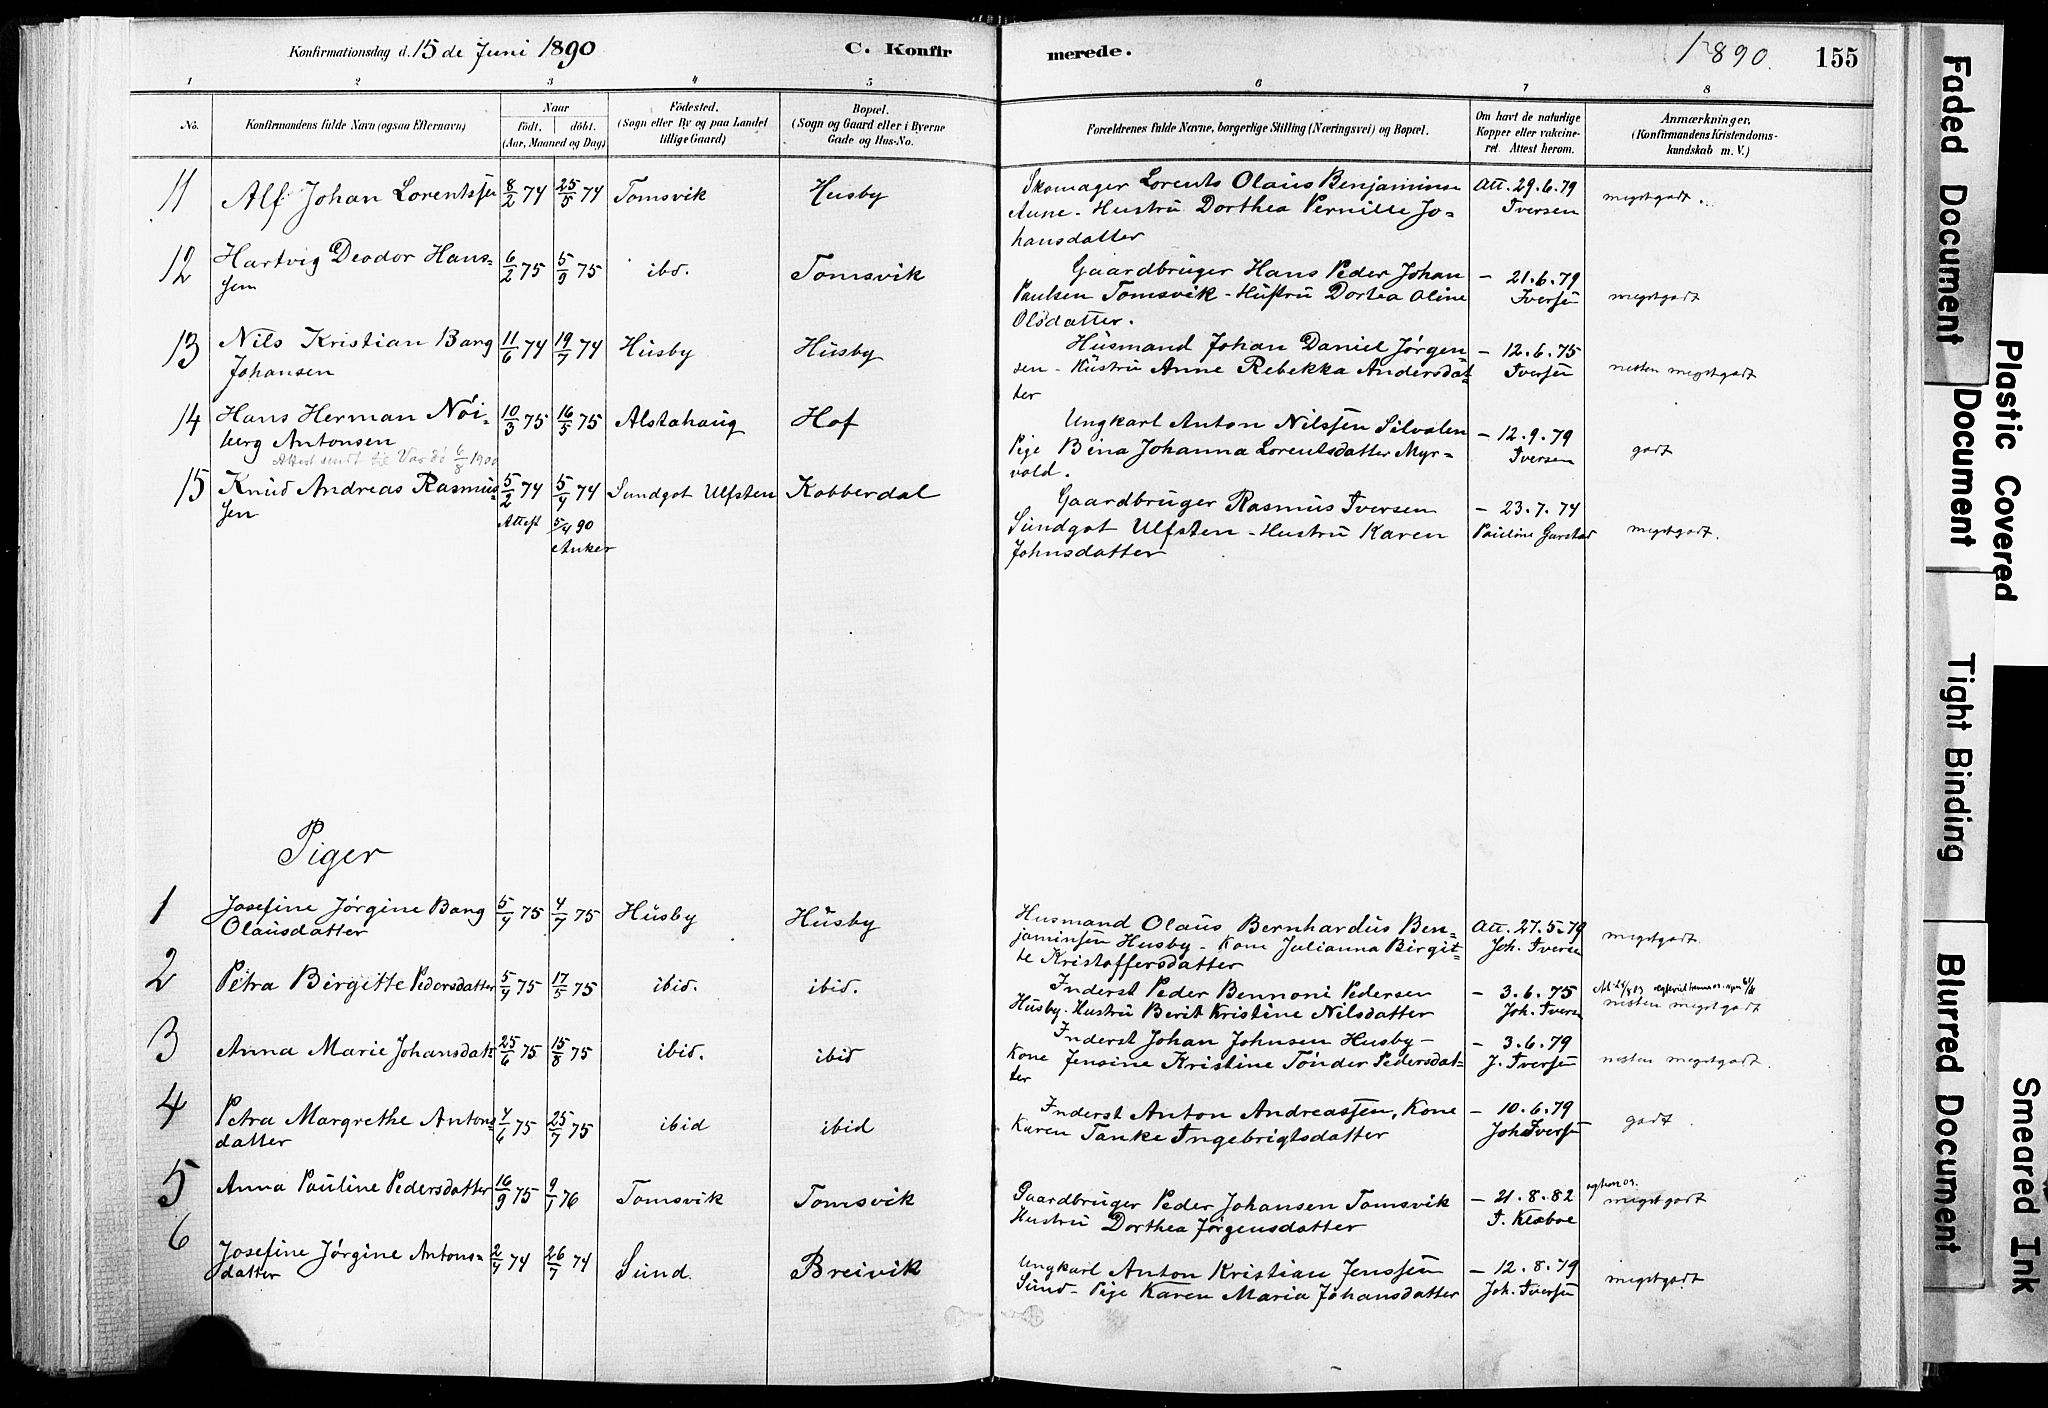 Konfirmationsdag d. 15 de Juni 1890
C. Konfirmerede.
1890.
155
1 2 3 4 5 6 7 8
No.
Konfirmandens fulde Navn (ogsaa Efternavn)
Naar
födt. döbt.
(Aar, Maaned og Dag)
Födested.
(Sogn eller By og paa Landet
tillige Gaard)
Bopæl.
(Sogn og Gaard eller i Byerne
Gade og Hus-No.
Forældrenes fulde Navne, borgerlige Stilling (Næringsvei) og Bopæl.
Om havt de naturlige
Kopper eller vakcine-
ret. Attest herom.
Anmærkninger.
(Konfirmandens Kristendoms-
kundskab m. V.)
11 Alf Johan Lorentssen 8/2 74 25/5 74 Tomsvik Husby
Skomager Lorents Olaus Benjaminsen
Aune - Hustru Dorthea Pernille Jo-
hansdatter
Att. 29.6.79
Iversen
megetgodt.
12 Hartvig Deodor Hans-
sen
6/2 75 5/9 75 ibd. Tomsvik
Gaardbruger Hans Peder Johan
Paulsen Tomsvik - Hustru Dortea Oline
Olsdatter.
- 21.6.79
Iversen
megetgodt
13 Nils Kristian Bang
Johansen
11/6 74 19/7 74 Husby Husby
Husmand Johan Daniel Jørgen-
sen - Hustru Anne Rebekka Andersdat-
ter
- 12.6.75
Iversen
nesten megetgodt
14 Hans Herman Nöi-
berg Antonsen
Attest sendt til Vardö 6/8 1900
10/3 75 16/5 75 Alstahaug Hof
Ungkarl Anton Nilssen Silvalen
Pige Bina Johanna Lorentsdatter Myr-
vold.
- 12.9.79
Iversen
godt
15 Knud Andreas Rasmus-
sen
5/2 74 5/4 74 Sundgot Ulfsten Kobberdal
Attest 5/4 90
Anker
Gaardbruger Rasmus Iversen
Sundgot Ulfsten - Hustru Karen
Johnsdatter
- 23.7.74
Pauline Garstad
megetgodt.
Piger
1 Josefine Jørgine Bang
Olausdatter
5/4 75 4/7 75 Husby Husby
Husmand Olaus Bernhardus Ben-
jaminsen Husby - Kone Julianna Birgit-
te Kristoffersdatter
Att. 27.5.79
Joh. Iversen
megetgodt.
2 Petra Birgitte Pedersdatter 5/4 75 17/5 75 ibid. ibid.
Inderst Peder Bennoni Pedersen
Husby - Hustru Berit Kristine Nilsdatter
- 3.6.75
Joh. Iversen
nesten megetgodt
3 Anna Marie Johansdatt 25/6 75 15/8 75 ibid. ibid
Inderst Johan Johnsen Husby -
Kone Jensine Kristine Tønder Pedersdat-
ter
- 3.6.79
J. Iversen
nesten megetgodt.
4 Petra Margrethe Antons-
datter
4/6 75 25/7 75 ibid ibid
Inderst Anton Andreassen, Kone
Karen Tanke Ingebrigtsdatter
- 10.6.79
Joh. Iversen
godt.
5 Anna Pauline Pedersdatter 16/9 75 9/1 76 Tomsvik Tomsvik
Gaardbruger Peder Johansen Tomsvik
Hustru Dorthea Jørgensdatter
- 21.8.82
T. Klæboe
megetgodt
6 Josefine Jørgine Antons-
datter
2/4 74 26/7 74 Sund. Breivik
Ungkarl Anton Kristian Jenssen
Sund - Pige Karen Maria Johansdatter
- 12.8.79
Joh. Iversen
megetgodt
Faded Document
Plastic Covered Document
Tight Binding
Blurred Document
Smeared Ink